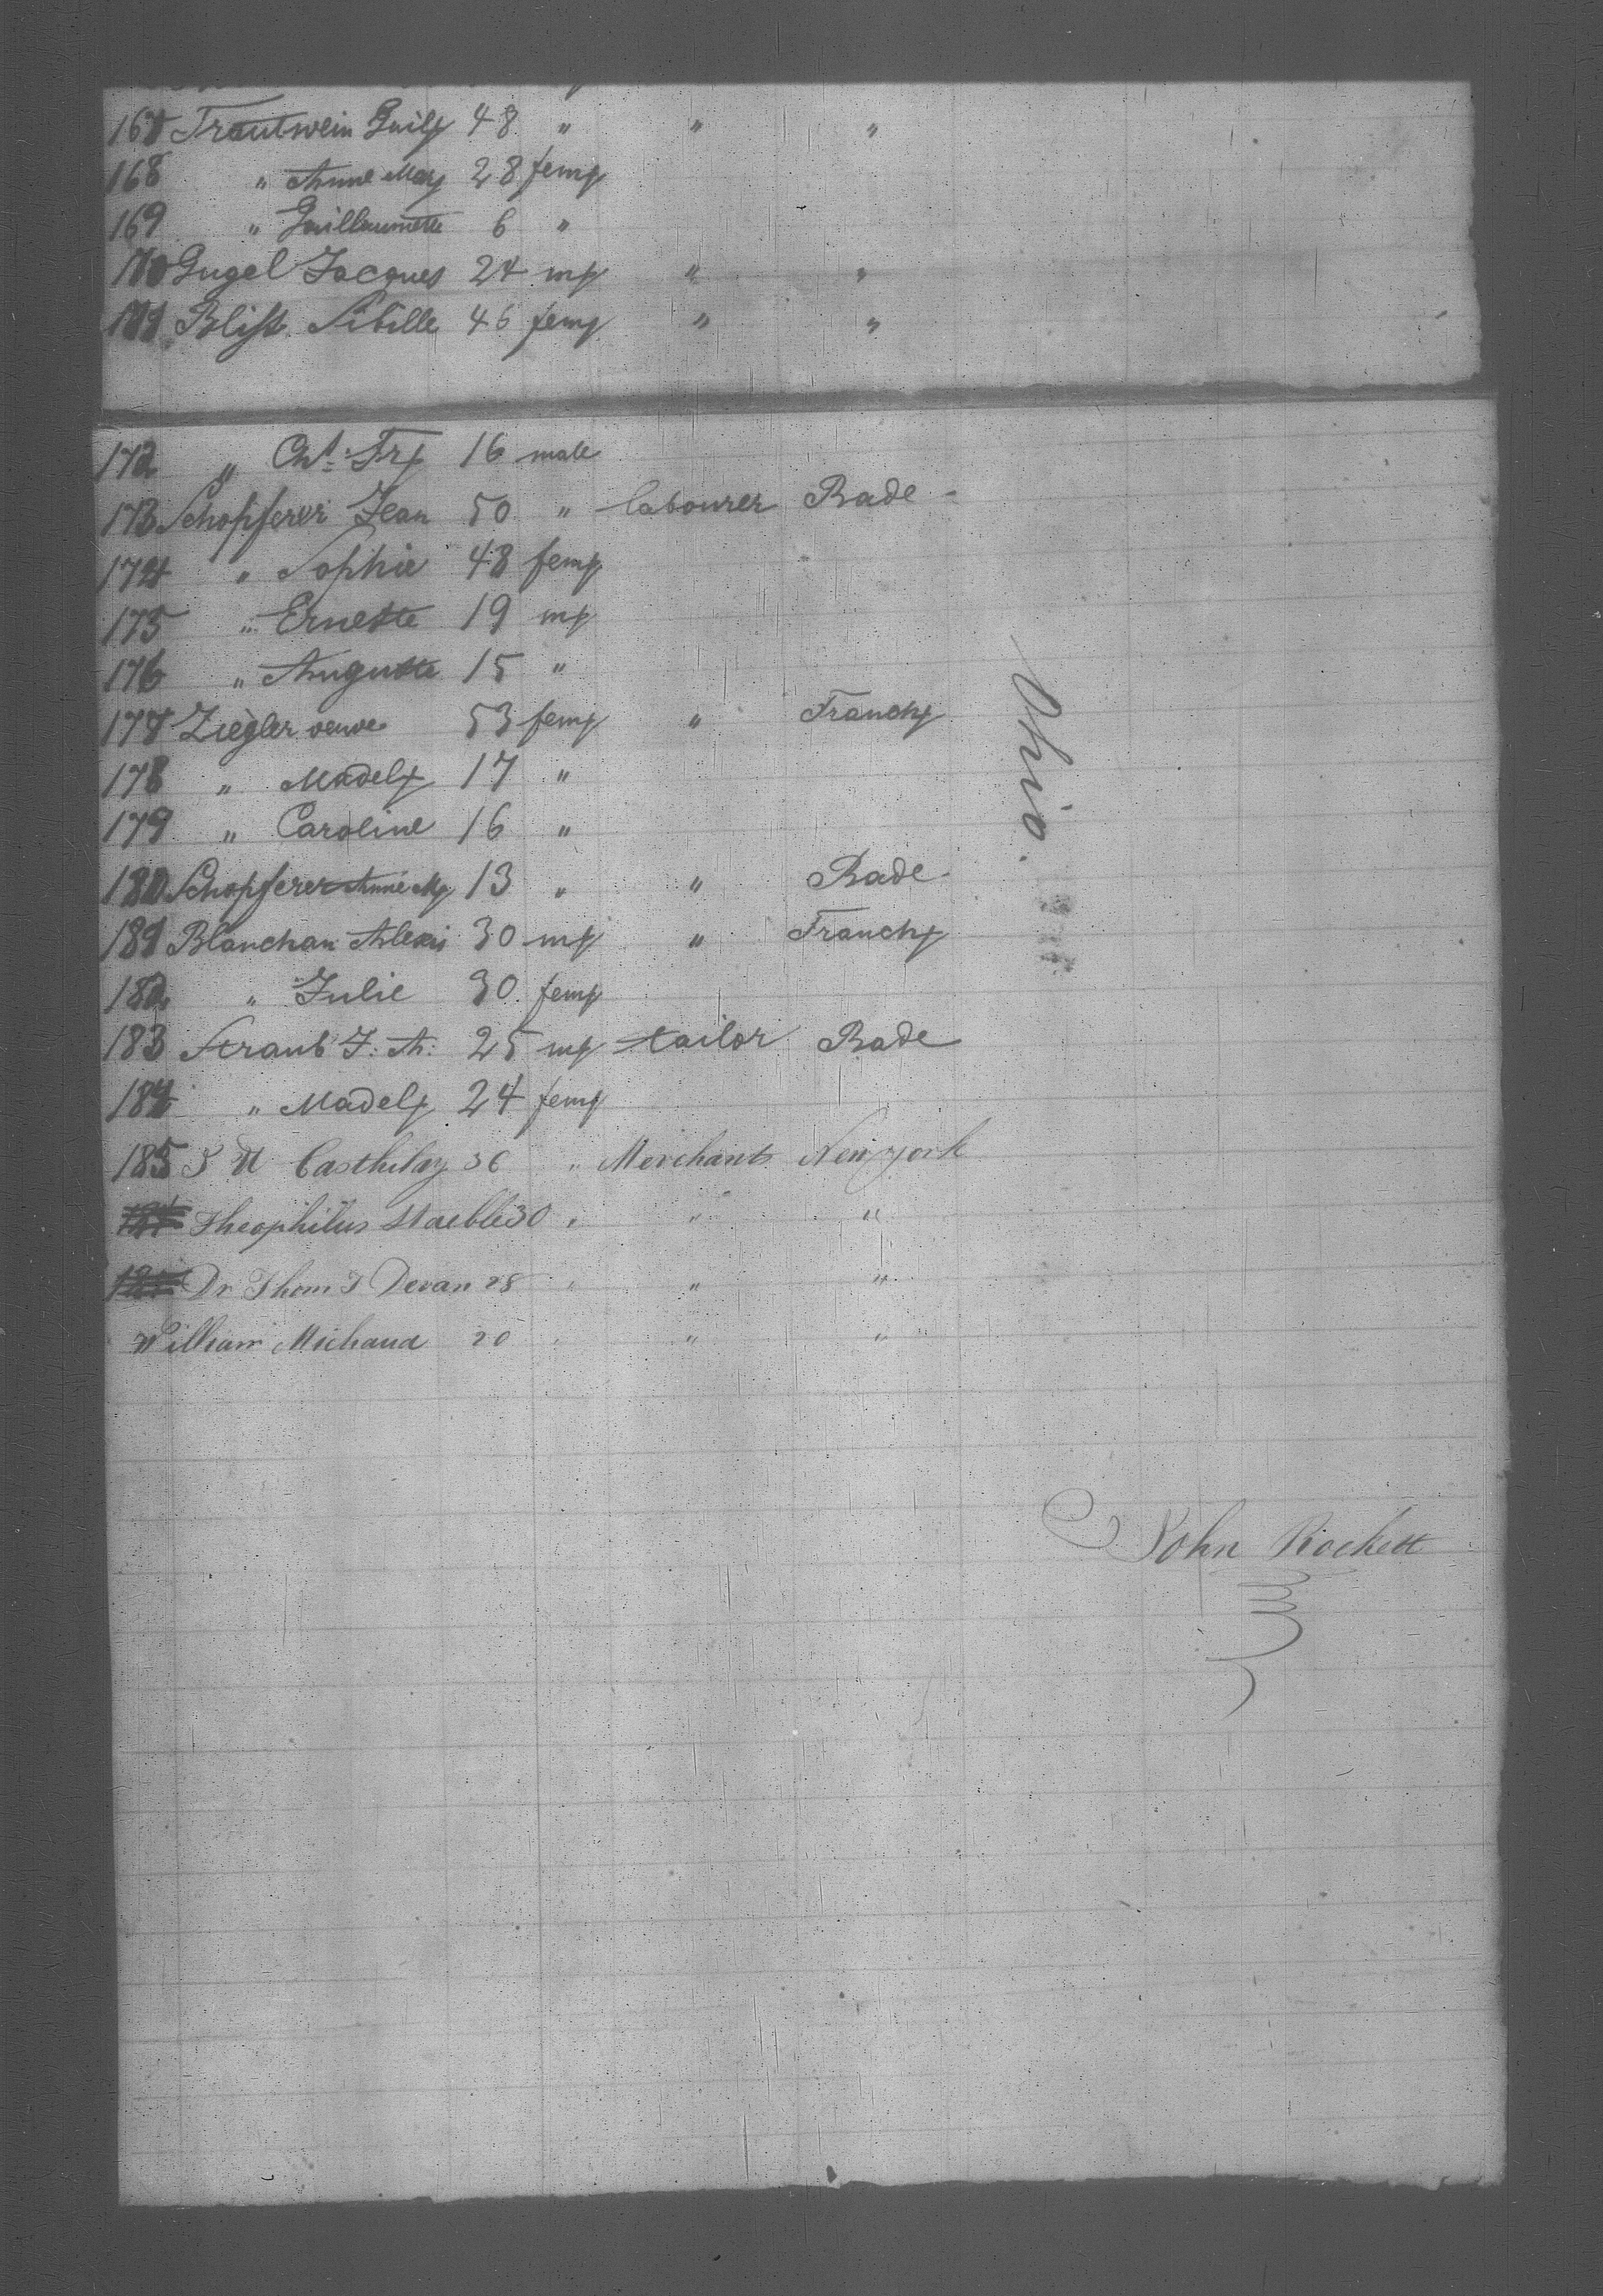 167 Trautwein Guilp 48 " " "
168 " Anne Mary 28 femp
169 " Guillaumette 6 "
170 Gugel Jacques 24 mp " "
171 Blist Sibille 46 femp " "
172 " Ch.t Frp 16 male
173 Schopferer Jean 50 " labourer Bade
174 " Sophie 48 femp
175 " Erneste 19 mp
176 " Auguste 15 "
177 Ziegler veuve 53 femp " Franchp
178 " Madelp 17 "
179 " Caroline 16 "
180 Schopferer Anne Mp 13 " " Bade
181 Blanchan Alexis 30 mp " Franchp
182 " Julie 30 femp
183 Straub J. A. 25 mp tailor Bade
184 " Madelp 24 femp
Ohio.
185 Casthilaz 36 " Merchants New york
Theophilus Staeble 30 " " "
Dr Thom T Devan 28 " " "
William Michaud 20 " " "
John Rockett